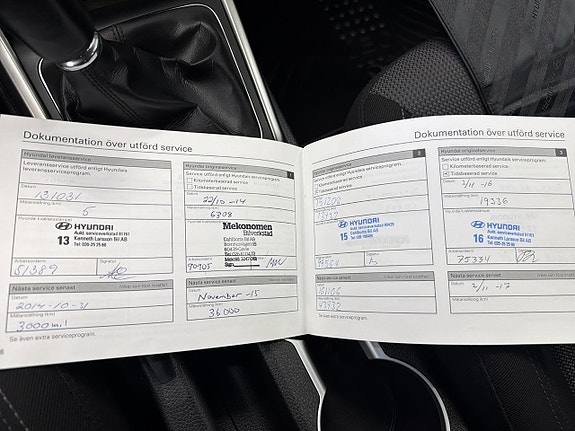 Dokumentation över utförd service
Hyundai leveransservice
Leveransservice utförd enligt Hyundais
leveransserviceprogram.
Datum
131031
Mätarställning (km)
5
HYUNDAI
13
Aukt. serviceverkstad
Kenneth Larsson Bil AB
51389
Nästa service senast
Datum
2014-10-31
Mätarställning (km)
3000 mil
Se även extra serviceprogram.
Hyundai originalservice
1
Service utförd enligt Hyundais serviceprogram.
Kilometerbaserad service
Tidsbaserad service
Datum
22/10 -14
Mätarställning (km)
6308
Mekonomen
Bilverkstad
Nästa service senast
Datum
November -15
Mätarställning (km)
36000
Dokumentation över utförd service
Hyundai originalservice
2
Service utförd enligt Hyundais serviceprogram.
Kilometerbaserad service
Tidsbaserad service
HYUNDAI
15
Nästa service senast
Se även extra serviceprogram.
Hyundai originalservice
3
Service utförd enligt Hyundais serviceprogram.
Kilometerbaserad service
Tidsbaserad service
Datum
2/11 -16
Mätarställning (km)
19336
HYUNDAI
16
Kenneth Larsson Bil AB
75334
Nästa service senast
Datum
2/11 -17
Mätarställning (km)